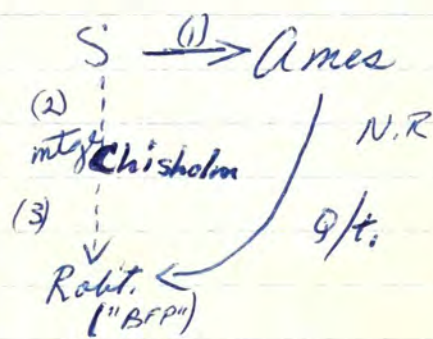 S (1) Ames
(2)
mtge Chisholm
N.R
(3)
Q/t.
Robt.
("BFP")